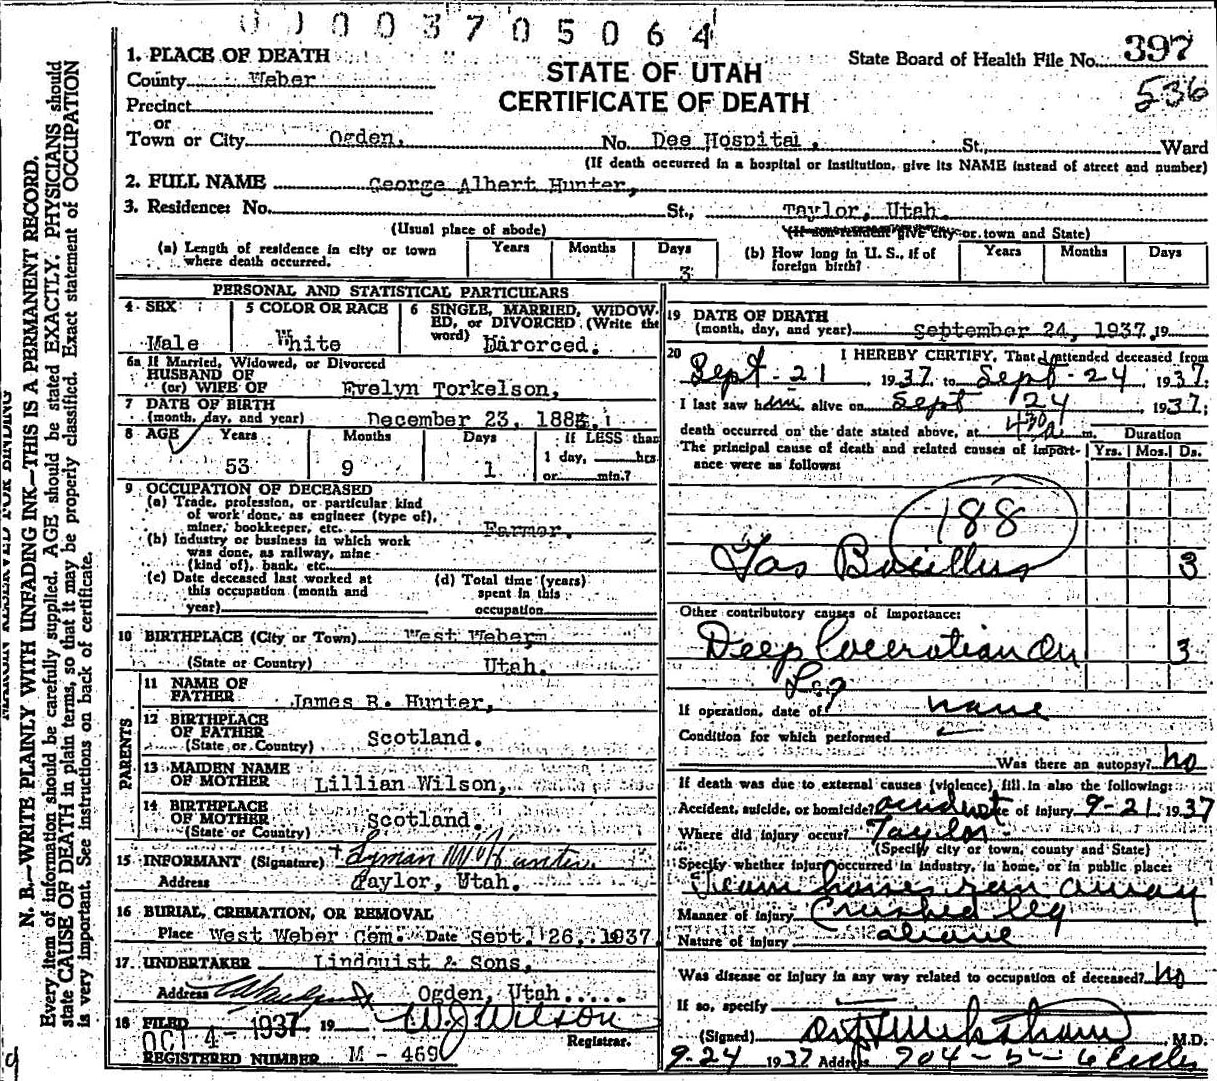 0003705064
State Board of Health File No. 397
536
STATE OF UTAH
CERTIFICATE OF DEATH
1. PLACE OF DEATH
County Weber
Precinct
or
Town or City Ogden, No. Dee Hospital, St., Ward
(If death occurred in a hospital or institution, give its NAME instead of street and number)
2. FULL NAME George Albert Hunter,
3. Residence: No. St., Taylor, Utah.
(Usual place of abode) (If non-resident give city or town and State)
(a) Length of residence in city or town where death occurred. Years Months Days 3
(b) How long in U. S., if of foreign birth? Years Months Days
PERSONAL AND STATISTICAL PARTICULARS
4 SEX Male
5 COLOR OR RACE White
6 SINGLE, MARRIED, WIDOWED, or DIVORCED (Write the word) Divorced.
6a If Married, Widowed, or Divorced
HUSBAND OF
(or) WIFE OF Evelyn Torkelson,
7 DATE OF BIRTH
(month, day, and year) December 23, 188
8 AGE Years 53 Months 9 Days 1 If LESS than 1 day, hrs. or min.?
9 OCCUPATION OF DECEASED
(a) Trade, profession, or particular kind
of work done, as engineer (type of),
miner, bookkeeper, etc. Farmer.
(b) Industry or business in which work
was done, as railway, mine
(kind of), bank, etc.
(c) Date deceased last worked at this occupation (month and year)
(d) Total time (years) spent in this occupation
10 BIRTHPLACE (City or Town) West Weber,
(State or Country) Utah.
PARENTS
11 NAME OF
FATHER James R. Hunter,
12 BIRTHPLACE
OF FATHER Scotland.
(State or Country)
13 MAIDEN NAME
OF MOTHER Lillian Wilson,
14 BIRTHPLACE
OF MOTHER Scotland.
(State or Country)
15 INFORMANT (Signature) Lyman W Hunter
Address Taylor, Utah.
16 BURIAL, CREMATION, OR REMOVAL
Place West Weber Cem. Date Sept. 26, 1937
17 UNDERTAKER Lindquist & Sons,
Address Ogden, Utah
18 FILED OCT 4 - 1937 19 W. J. Wilson
Registrar.
REGISTERED NUMBER M - 469
19 DATE OF DEATH
(month, day, and year) September 24, 1937. 19
20 I HEREBY CERTIFY, That I attended deceased from
Sept - 21 1937, to Sept - 24 1937;
I last saw him alive on Sept 24 1937;
death occurred on the date stated above, at 430 a m. Duration
The principal cause of death and related causes of importance were as follows: Yrs. Mos. Ds.
188
Gas Bacillus 3
Other contributory causes of importance:
Deep Laceration on 3
Leg
If operation, date of none
Condition for which performed
Was there an autopsy? no
If death was due to external causes (violence) fill in also the following:
Accident, suicide, or homicide? accident Date of injury 9-21 1937
Where did injury occur? Taylor
(Specify city or town, county and State)
Specify whether injury occurred in industry, in home, or in public place:
Team horses ran away
Manner of injury Crushed leg
Nature of injury above
Was disease or injury in any way related to occupation of deceased? No
If so, specify
(Signed) M.D.
9-24 1937 Address 904-5-6 Eccles
MARGIN RESERVED FOR BINDING
N. B.—WRITE PLAINLY WITH UNFADING INK—THIS IS A PERMANENT RECORD.
Every item of information should be carefully supplied. AGE should be stated EXACTLY. PHYSICIANS should
state CAUSE OF DEATH in plain terms, so that it may be properly classified. Exact statement of OCCUPATION
is very important. See instructions on back of certificate.